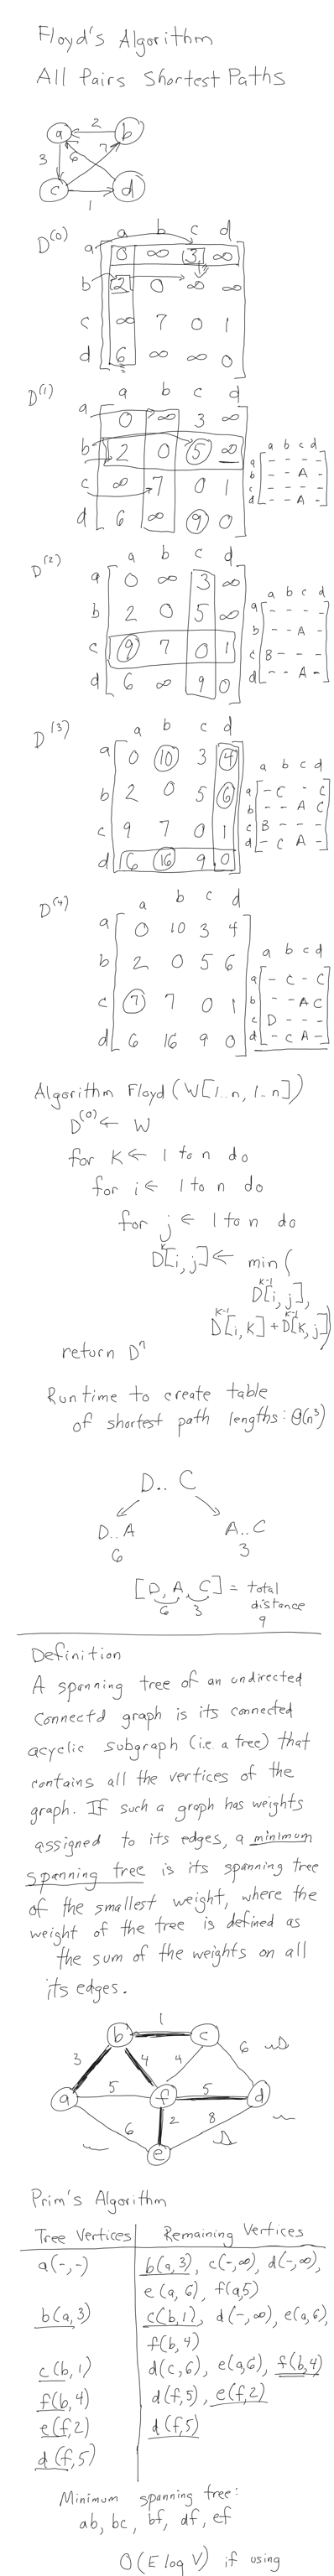 Floyd's Algorithm
All Pairs Shortest Paths
a 2 b
3 6 7
c 1 d
a b c d
D(0)
a 0 ∞ 3 ∞
b 2 0 ∞ ∞
c ∞ 7 0 1
d 6 ∞ ∞ 0
D(1)
a b c d
a 0 ∞ 3 ∞
b 2 0 5 ∞
c ∞ 7 0 1
d 6 ∞ 9 0
a b c d
a - - - -
b - - A -
c - - - -
d - - A -
D(2)
a b c d
a 0 ∞ 3 ∞
b 2 0 5 ∞
c 9 7 0 1
d 6 ∞ 9 0
a b c d
a - - - -
b - - A -
c B - - -
d - - A -
D(3)
a b c d
a 0 10 3 4
b 2 0 5 6
c 9 7 0 1
d 6 16 9 0
a b c d
a - C - C
b - - A C
c B - - -
d - C A -
D(4)
a b c d
a 0 10 3 4
b 2 0 5 6
c 7 7 0 1
d 6 16 9 0
a b c d
a - C - C
b - - A C
c D - - -
d - C A -
Algorithm Floyd (W[1..n, 1..n])
D(0) ← W
for K ← 1 to n do
for i ← 1 to n do
for j ← 1 to n do
D^K[i,j] ← min(
D^K-1[i,j],
D^K-1[i,K] + D^K-1[K,j])
return D^n
Runtime to create table
of shortest path lengths: Θ(n³)
D.. C
D..A A..C
6 3
[D, A, C] = total
6 3 distance
9
Definition
A spanning tree of an undirected
connectd graph is its connected
acyclic subgraph (i.e. a tree) that
contains all the vertices of the
graph. If such a graph has weights
assigned to its edges, a minimum
spanning tree is its spanning tree
of the smallest weight, where the
weight of the tree is defined as
the sum of the weights on all
its edges.
b 1 c
3 4 4 6
a 5 f 5 d
6 2 8
e
Prim's Algorithm
Tree Vertices Remaining Vertices
a(-,-) b(a,3), c(-,∞), d(-,∞),
e(a,6), f(a,5)
b(a,3) c(b,1), d(-,∞), e(a,6),
f(b,4)
c(b,1) d(c,6), e(a,6), f(b,4)
f(b,4) d(f,5), e(f,2)
e(f,2) d(f,5)
d(f,5)
Minimum spanning tree:
ab, bc, bf, df, ef
O(E log V) if using